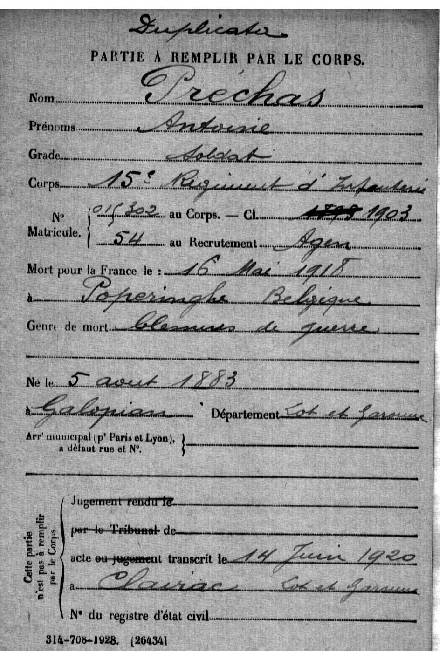 Duplicata
PARTIE À REMPLIR PAR LE CORPS.
Nom Préchas
Prénoms Antoine
Grade Soldat
Corps 15e Régiment d'Infanterie
N° Matricule. 015302 au Corps. — Cl. 1898 1903
54 au Recrutement Agen
Mort pour la France le : 16 Mai 1918
à Poperinghe Belgique
Genre de mort blessures de guerre
Né le 5 aout 1883
à Galapian Département Lot et Garonne
Arrt municipal (pr Paris et Lyon), à défaut rue et N°.
Cette partie n'est pas à remplir par le Corps.
Jugement rendu le
par le Tribunal de
acte ou jugement transcrit le 14 Juin 1920
à Clairac Lot et Garonne
N° du registre d'état civil
314-708-1928. [26434]